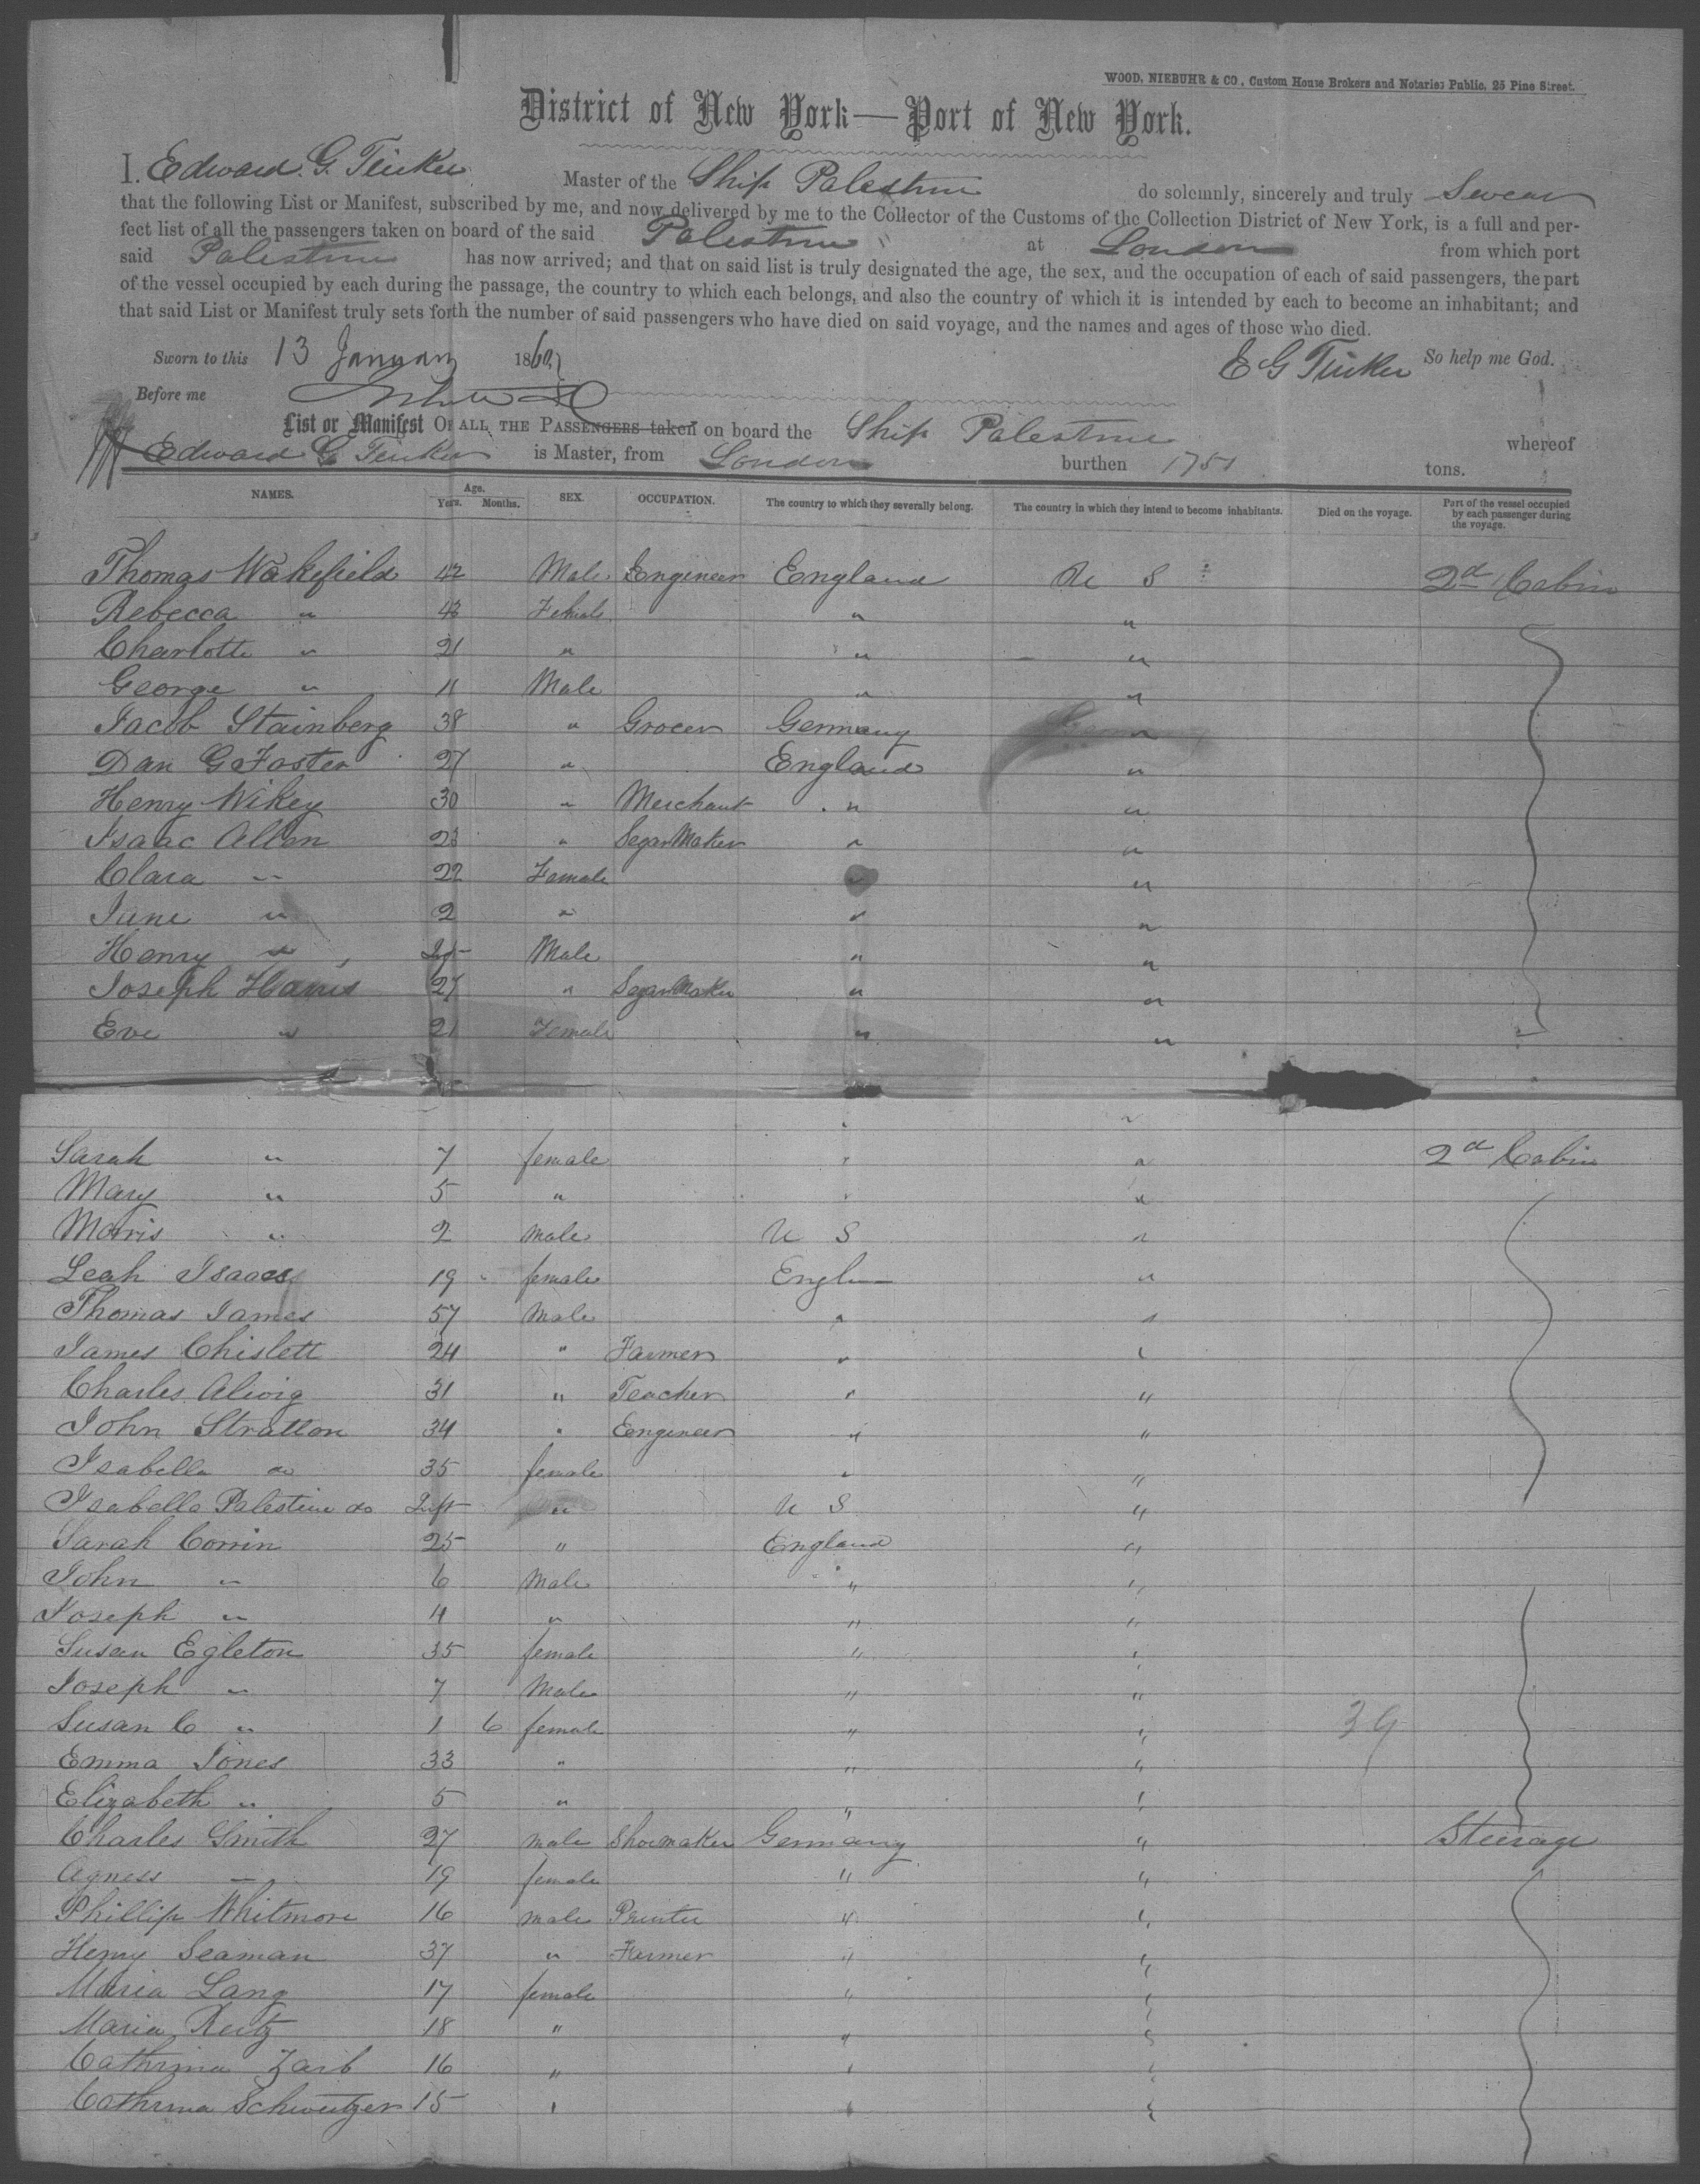 WOOD, NIEBUHR & CO, Custom House Brokers and Notaries Public, 25 Pine Street.
District of New York—Port of New York.
I. Edward G. Tinker Master of the Ship Palestine do solemnly, sincerely and truly Swear
that the following List or Manifest, subscribed by me, and now delivered by me to the Collector of the Customs of the Collection District of New York, is a full and per-
fect list of all the passengers taken on board of the said Palestine at London from which port
said Palestine has now arrived; and that on said list is truly designated the age, the sex, and the occupation of each of said passengers, the part
of the vessel occupied by each during the passage, the country to which each belongs, and also the country of which it is intended by each to become an inhabitant; and
that said List or Manifest truly sets forth the number of said passengers who have died on said voyage, and the names and ages of those who died.
Sworn to this 13 January 1860 E G Tinker So help me God.
Before me
List or Manifest OF ALL THE PASSENGERS taken on board the Ship Palestine whereof
Edward G Tinker is Master, from London burthen 1751 tons.
NAMES. Age. Years. Months. SEX. OCCUPATION. The country to which they severally belong. The country in which they intend to become inhabitants. Died on the voyage. Part of the vessel occupied by each passenger during the voyage.
Thomas Wakefield 42 Male Engineer England U S 2d Cabin
Rebecca " 43 Female " "
Charlotte " 21 " " "
George " 11 Male " "
Jacob Stainberg 38 " Grocer Germany "
Dan G Foster 27 " England "
Henry Wikey 30 " Merchant " "
Isaac Allen 23 " Segar Maker " "
Clara " 22 Female " "
June " 2 " " "
Henry " Inft Male " "
Joseph Harris 27 " Segar Maker " "
Eve " 21 Female " "
" "
Sarah " 7 female " " 2d Cabin
Mary " 5 " " "
Morris " 2 male U S "
Leah Isaacs 19 female Engl "
Thomas James 57 Male " "
James Chislett 24 " Farmer " "
Charles Alwig 31 " Teacher " "
John Stratton 34 " Eengineer " "
Isabella do 35 female " "
Isabella Palestine do Inft " U S "
Sarah Corrin 25 " England "
John " 6 Male " "
Joseph " 4 " " "
Susan Egleton 35 female " "
Joseph " 7 Male " "
Susan C " 1 6 female " " 39
Emma Jones 33 " " "
Elizabeth " 5 " " "
Charles Smith 27 male Shoemaker Germany " Steerage
Agness " 19 female " "
Phillip Whitmore 16 male Printer " "
Henry Seaman 37 " Farmer " "
Maria Lang 17 female " "
Maria Reitz 18 " " "
Cathrina Zarb 16 " " "
Cathrina Schweitzer 15 " " "